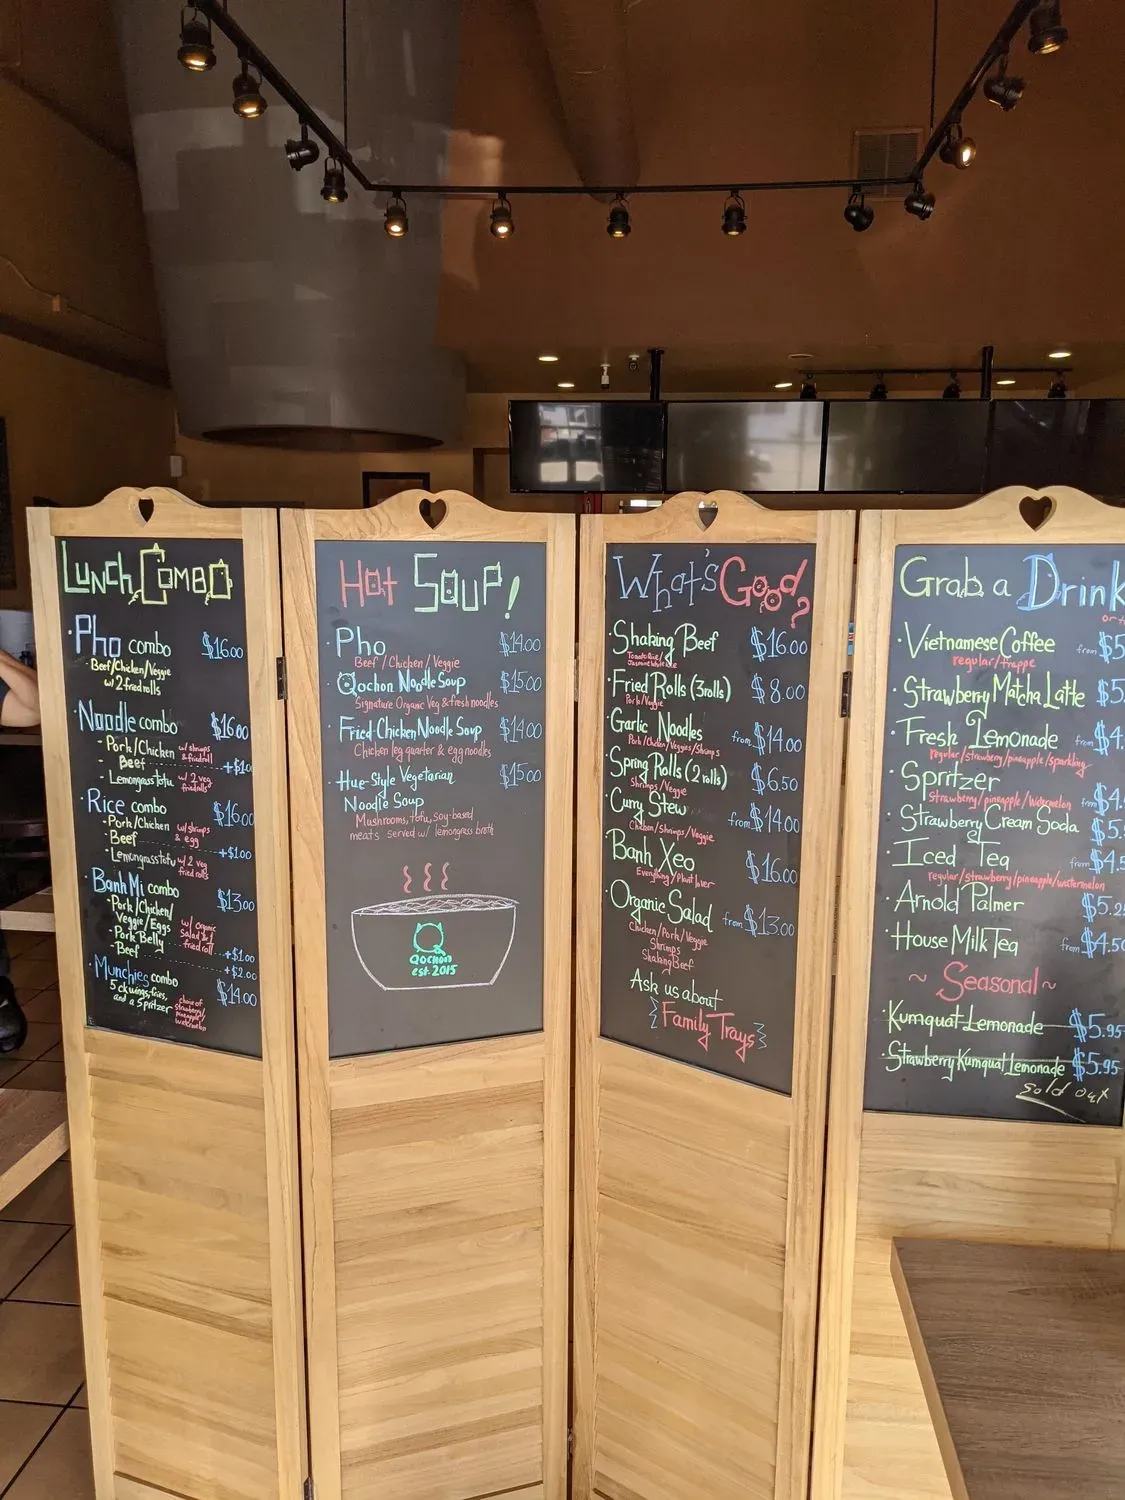 Lunch Combo
·Pho combo $16.00
·Beef/Chicken/Veggie
w/ 2 fried rolls
·Noodle combo $16.00
- Pork/Chicken w/ shrimps & friedroll
- Beef +$1.00
- Lemongrass Tofu w/ 2 veg fried rolls
·Rice combo $16.00
-Pork/Chicken w/ shrimps & egg
-Beef +$1.00
-Lemongrass tofu w/ 2 veg fried rolls
·Banh Mi combo $13.00
·Pork/Chicken/
Veggie/Eggs w/ organic salad & 1 fried roll
-Pork Belly +$1.00
-Beef +$2.00
·Munchies combo $14.00
5 ck wings, fries,
and a Spritzer choice of strawberry/ pineapple/ watermelon
Hot Soup!
·Pho $14.00
Beef / Chicken / Veggie
·Qochon Noodle Soup $15.00
Signature Organic Veg & fresh noodles
·Fried Chicken Noodle Soup $14.00
Chicken leg quarter & egg noodles
·Hue-Style Vegetarian $15.00
Noodle Soup
Mushrooms, tofu, soy-based
meats served w/ lemongrass broth
Qochon
est. 2015
What's Good?
·Shaking Beef $16.00
·Fried Rolls (3 rolls) $8.00
Pork/Veggie
·Garlic Noodles from $14.00
Pork/Chicken/Veggies/Shrimps
·Spring Rolls (2 rolls) $6.50
Shrimps/Veggie
·Curry Stew from $14.00
Chicken/Shrimps/Veggie
·Banh Xeo $16.00
Everything/Plant lover
·Organic Salad from $13.00
Chicken/Pork/Veggie
Shrimps
Shaking Beef
Ask us about
Family Trays
Grab a Drink
·Vietnamese Coffee $5
regular/frappe
·Strawberry Matcha Latte $5.
·Fresh Lemonade from $4.
regular/strawberry/pineapple/sparkling
·Spritzer from $4.
strawberry/pineapple/watermelon
·Strawberry Cream Soda $5.
·Iced Tea from $4.5
regular/strawberry/pineapple/watermelon
·Arnold Palmer $5.2
·House Milk Tea from $4.50
~ Seasonal ~
·Kumquat Lemonade $5.95
·Strawberry Kumquat Lemonade $5.95
sold out